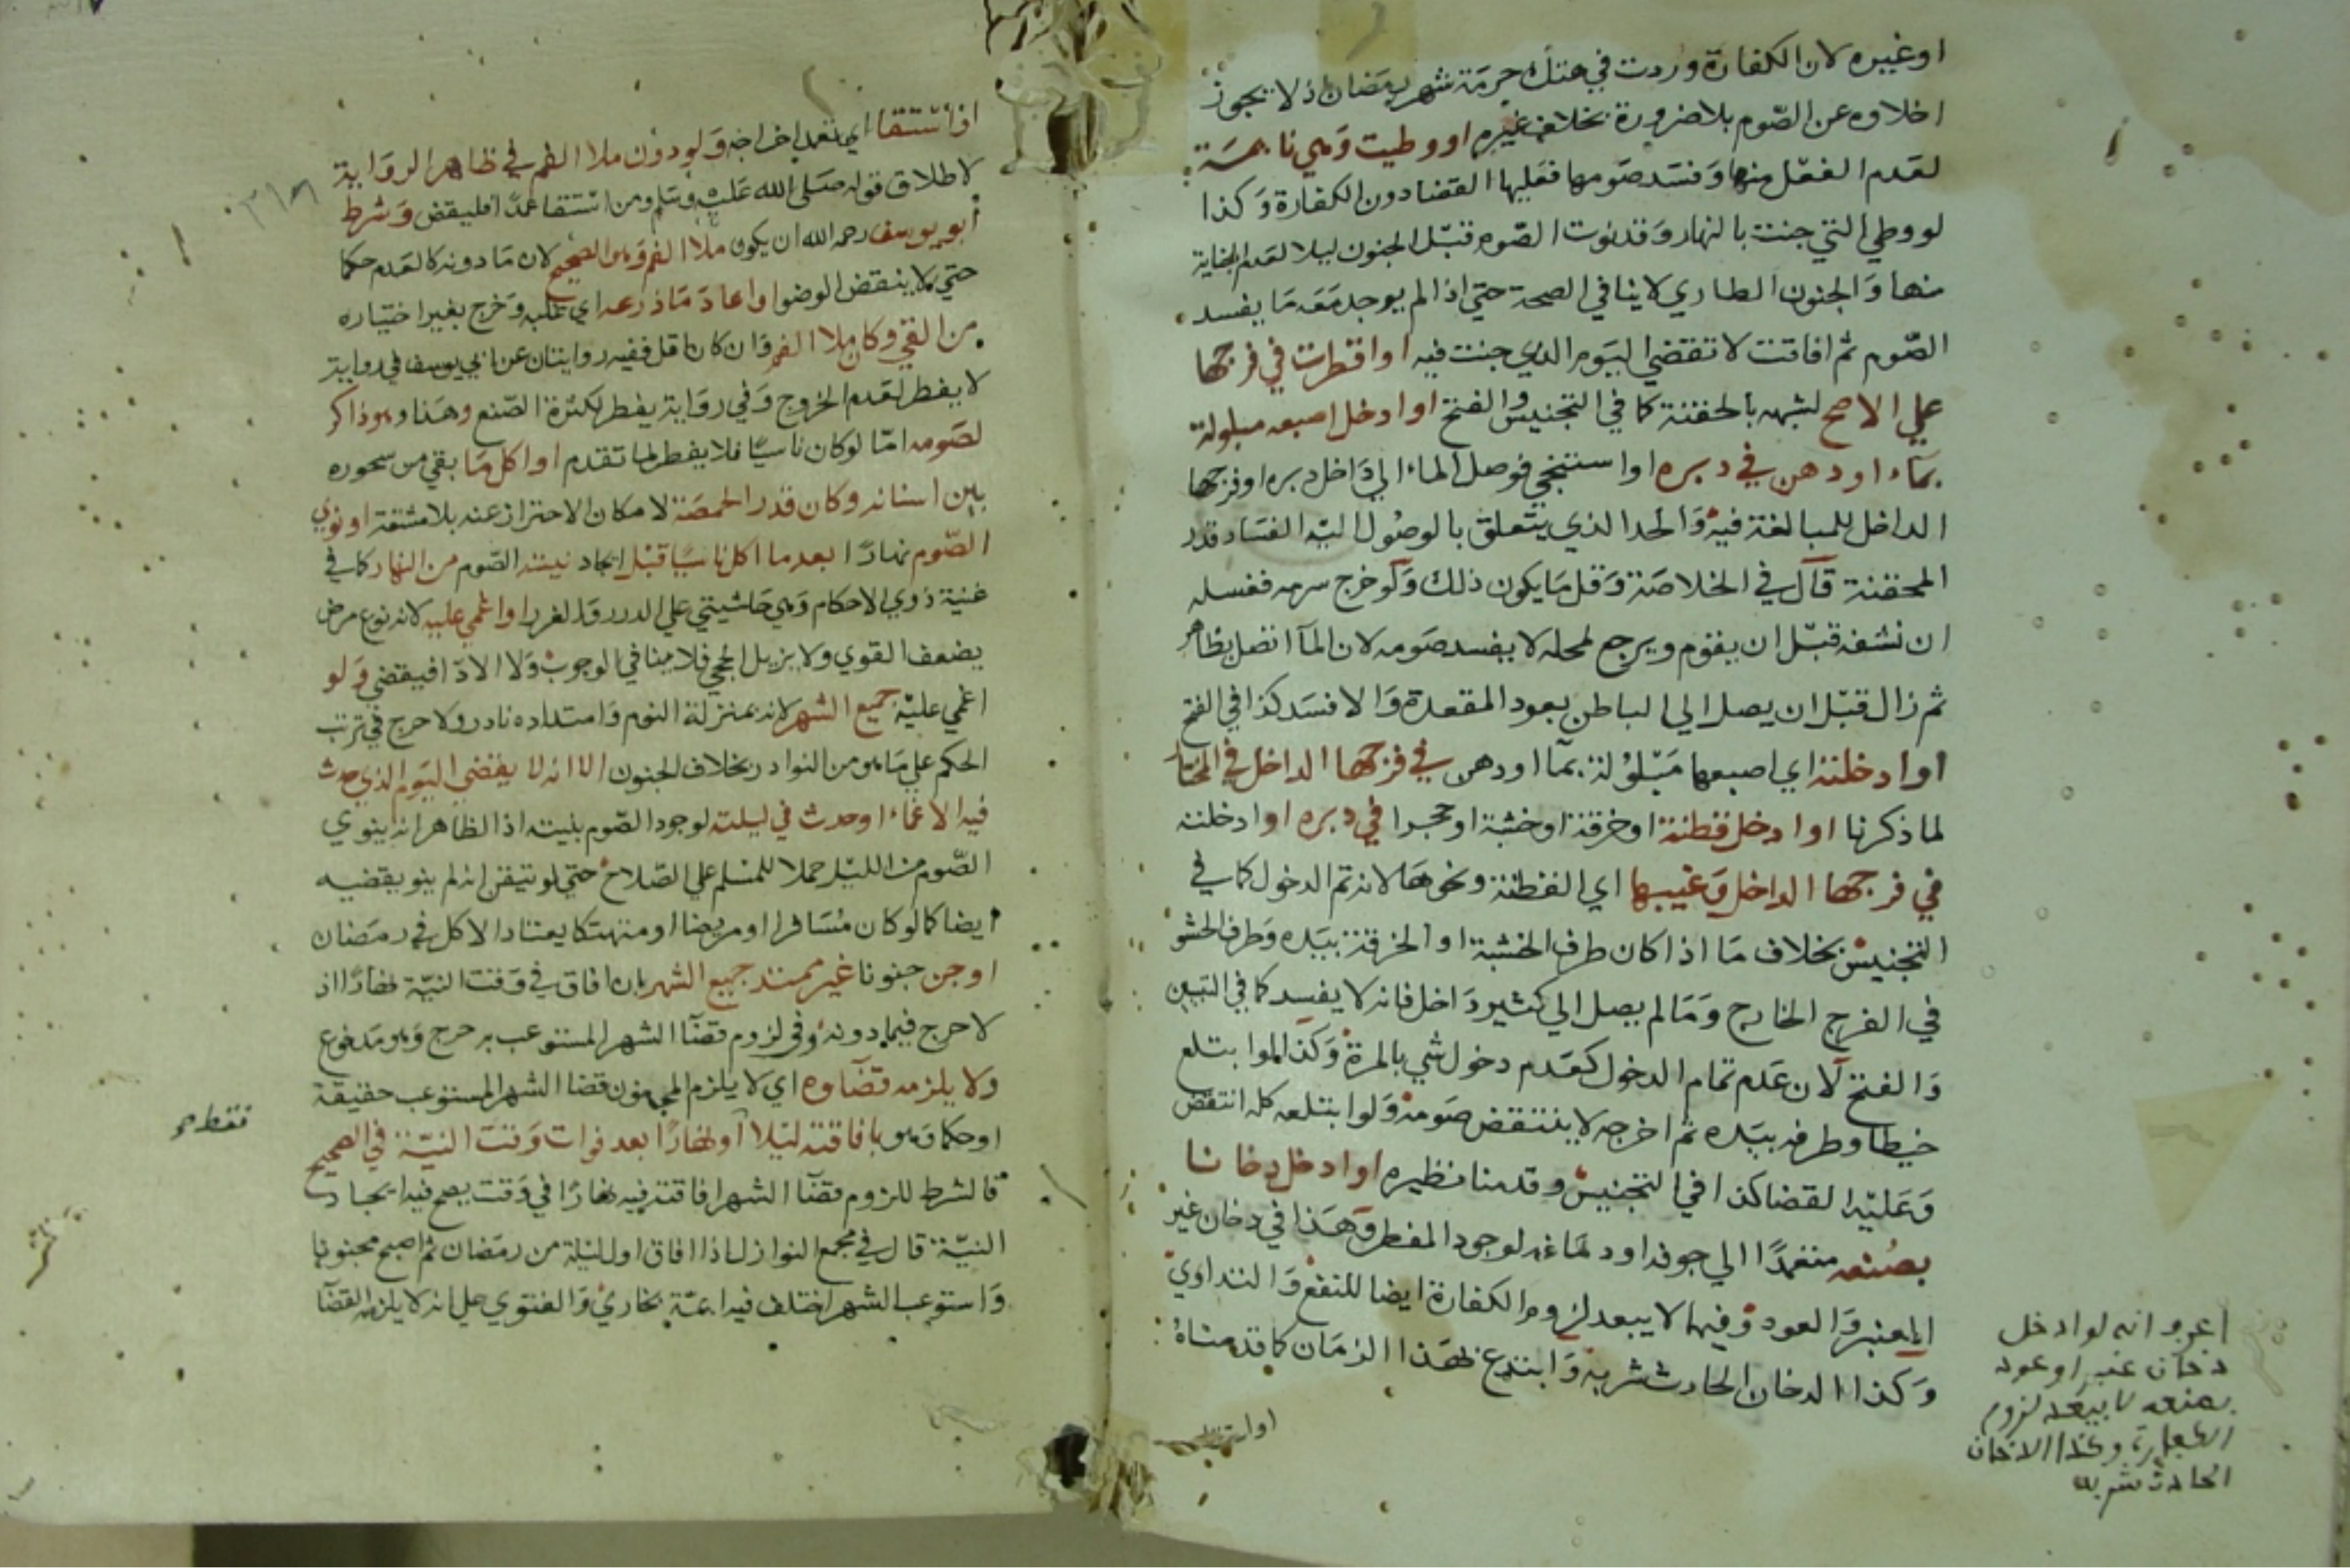 او غيره لان الكفارة وردت في هتك حرمة شهر رمضان اذ لا يجوز
اخلاوه عن الصوم بلا ضرورة بخلاف غيره او وطيت وهي نايمة
لعدم الفعل منها وفسد صومها فعليها القضا دون الكفارة وكذا
لو وطي التي جنت بالنهار وقد نوت الصوم قبل الجنون ليلا لعدم الجناية
منها والجنون الطاري لا ينافي الصحة حتي اذا لم يوجد معه ما يفسد
الصوم ثم افاقت لا تقضي اليوم الذي جنت فيه او اقطرت في فرجها
علي الاصح لشبهه بالحقنة كما في التجنيس والفتح او ادخل اصبعه مبلولة
بماء او دهن في دبره او استنجي فوصل الماء الي داخل دبره او فرجها
الداخل للمبالغة فيه والحد الذي يتعلق بالوصول اليه الفساد قدر
المحقنة قال في الخلاصة وقل ما يكون ذلك ولو خرج سرمه فغسله
ان نشفه قبل ان يقوم ويرجع لمحله لا يفسد صومه لان الما اتصل بظاهر
ثم زال قبل ان يصل الي الباطن بعود المقعدة والا فسد كذا في الفتح
او ادخلته اي اصبعها مبلولة بما او دهن في فرجها الداخل في المختار
لما ذكرنا او ادخل قطنة او خرقة او خشبة او حجرا في دبره او ادخلته
في فرجها الداخل وغيبها اي القطنة ونحوها لانه تم الدخول كما في
التجنيس بخلاف ما اذا كان طرف الخشبة او الخرقة بيده وطرف الحشو
في الفرج الخارج وما لم يصل الي كثير داخل فانه لا يفسد كما في التبيين
والفتح لان عدم تمام الدخول كعدم دخول شي بالمرة وكذا لو ابتلع
خيطا وطرفه بيده ثم اخرجه لا ينتقض صومه ولو ابتلعه كله انتقض
وعليه القضا كذا في التجنيس وقدمنا نظيره او ادخل دخانا
بصنعه متعمدا الي جوفه او دماغه لوجود المفطر وهذا في دخان غير
العنبر والعود وفيهما لا يبعد لزوم الكفارة ايضا للنفع والتداوي
وكذا الدخان الحادث شربه وابتدع لهذا الزمان كما قدمناه
انه لو ادخل
دخان عنبر او عود
بصنعه لا يبعد لزوم
الكفارة وكذا الدخان
الحادث شربه
اذا استقا اي تعمد اخراجه ولو دون ملا الفم في ظاهر الرواية
لاطلاق قوله صلى الله عليه وسلم ومن استقا عمدا فليقض وشرط
ابو يوسف رحمه الله ان يكون ملا الفم وهو الصحيح لان ما دونه كالعدم حكما
حتي لا ينقض الوضو او اعاد ما ذرعه اي غلبه وخرج بغير اختياره
من القي وكان ملا الفم وان كان اقل ففيه روايتان عن ابي يوسف في رواية
لا يفطر لعدم الخروج وفي رواية يفطر لكثرة الصنع وهذا وهو ذاكر
لصومه اما لو كان ناسيا فلا يفطر لما تقدم او اكل ما بقي من سحوره
بين اسنانه وكان قدر الحمصة لامكان الاحتراز عنه بلا مشقة او نوي
الصوم نهارا بعد ما اكل ناسيا قبل ايجاد نيته الصوم من النهار كما في
غنية ذوي الاحكام وهي حاشيتي علي الدرر والغرر او اغمي عليه لانه نوع مرض
يضعف القوي ولا يزيل الحجي فلا ينافي الوجوب ولا الادا فيقضي ولو
اغمي عليه جميع الشهر لانه بمنزلة النوم وامتداده نادر ولا حرج في ترتب
الحكم علي ما هو من النوادر بخلاف الجنون الا انه لا يقضي اليوم الذي حدث
فيه الاغماء او حدث في ليلته لوجود الصوم بنيته اذ الظاهر انه ينوي
الصوم من الليل حملا للمسلم علي الصلاح حتي لو تيقن انه لم ينو يقضيه
ايضا كما لو كان مسافرا او مريضا او منهتكا يعتاد الاكل في رمضان
او جن جنونا غير ممتد جميع الشهر بان افاق في وقت النية نهارا اذ
لا حرج فيما دونه وفي لزوم قضا الشهر المستوعب به حرج وهو مدفوع
ولا يلزمه قضاوه اي لا يلزم المجنون قضا الشهر المستوعب حقيقة
او حكما وهو بافاقته ليلا او نهارا بعد فوات وقت النية في الصحيح
فالشرط للزوم قضا الشهر افاقته فيه نهارا في وقت يصح فيه ايجاد
النية قال في مجمع النوازل اذا افاق اول ليلة من رمضان ثم اصبح مجنونا
واستوعب الشهر اختلف فيه ايمة بخاري والفتوي علي انه لا يلزمه القضا